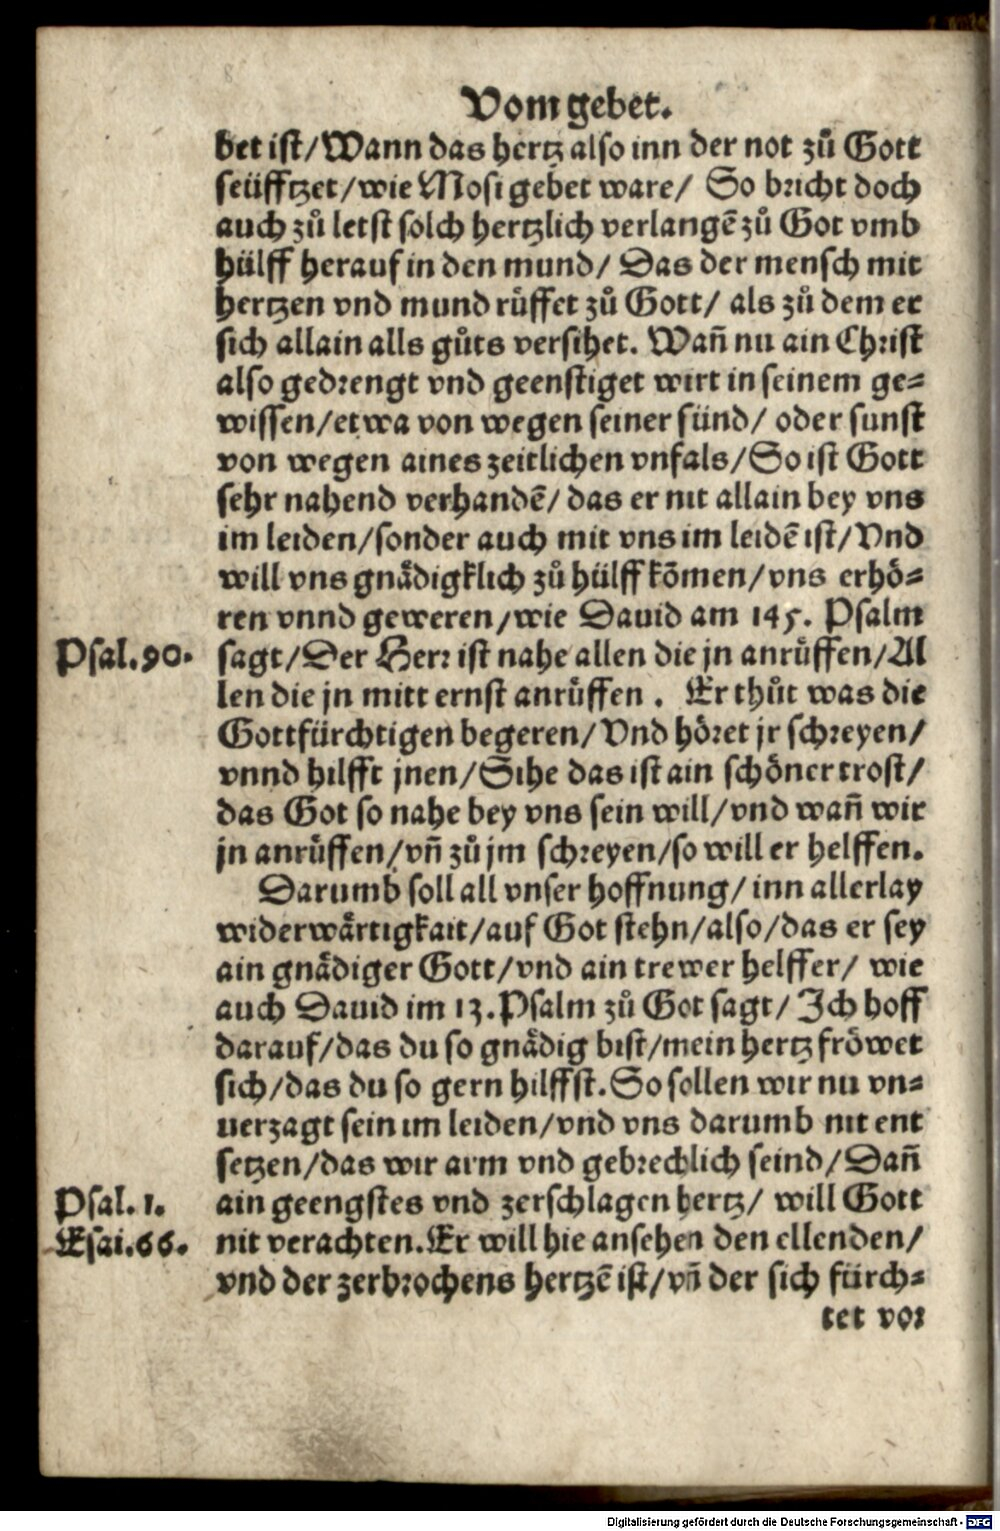 Vom gebet.
bet ist/ Wann das hertz also inn der not zů Gott
seüfftzet/ wie Mosi gebet ware/ So bricht doch
auch zů letst solch hertzlich verlangē zů Got vmb
hülff herauf in den mund/ Das der mensch mit
hertzen vnd mund růffet zů Gott/ als zů dem er
sich allain alls gůts versihet. Wañ nu ain Christ
also gedrengt vnd geenstiget wirt in seinem ge=
wissen/ etwa von wegen seiner sünd/ oder sunst
von wegen aines zeitlichen vnfals/ So ist Gott
sehr nahend verhandē/ das er nit allain bey vns
im leiden/ sonder auch mit vns im leidē ist/ Vnd
will vns gnådigklich zů hülff kōmen/ vns erhö=
ren vnnd geweren/ wie Dauid am 145. Psalm
Psal. 90.
sagt/ Der Herr ist nahe allen die jn anrůffen/ Al
len die jn mitt ernst anrůffen. Er thůt was die
Gottfürchtigen begeren/ Vnd höret jr schreyen/
vnnd hilfft jnen/ Sihe das ist ain schöner trost/
das Got so nahe bey vns sein will/ vnd wañ wir
jn anrůffen/ vñ zů jm schreyen/ so will er helffen.
Darumb soll all vnser hoffnung/ inn allerlay
widerwårtigkait/ auf Got stehn/ also/ das er sey
ain gnådiger Gott/ vnd ain trewer helffer/ wie
auch Dauid im 13. Psalm zů Got sagt/ Ich hoff
darauf/ das du so gnådig bist/ mein hertz fröwet
sich/ das du so gern hilffst. So sollen wir nu vn=
uerzagt sein im leiden/ vnd vns darumb nit ent
setzen/ das wir arm vnd gebrechlich seind/ Dañ
Psal. 1.
ain geengstes vnd zerschlagen hertz/ will Gott
Esai. 66.
nit verachten. Er will hie ansehen den ellenden/
vnd der zerbrochens hertzē ist/ vñ der sich fürch=
tet vor
Digitalisierung gefördert durch die Deutsche Forschungsgemeinschaft - DFG